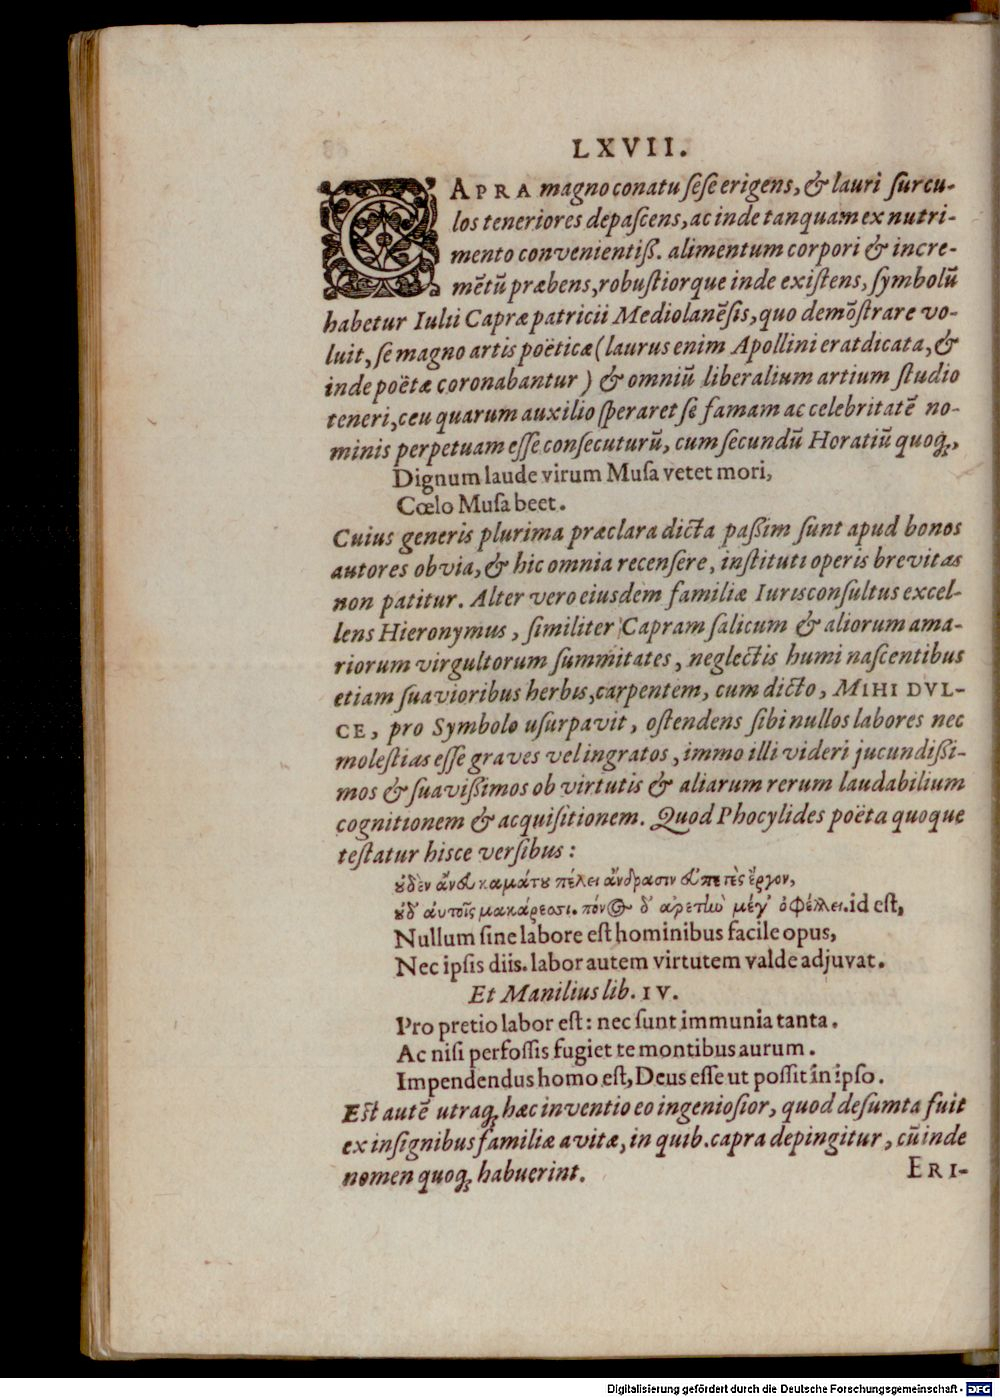 LXVII.
CAPRA magno conatu ſeſe erigens, & lauri ſurcu-
los teneriores depaſcens, ac inde tanquam ex nutri-
mento convenientiſſ. alimentum corpori & incre-
mētū præbens, robuſtiorque inde exiſtens, ſymbolū
habetur Iulii Capræ patricii Mediolanēſis, quo demōſtrare vo-
luit, ſe magno artis poëticæ (laurus enim Apollini erat dicata, &
inde poëtæ coronabantur) & omniū liberalium artium ſtudio
teneri, ceu quarum auxilio ſperaret ſe famam ac celebritatē no-
minis perpetuam eſſe conſecuturū, cum ſecundū Horatiū quoq́;,
Dignum laude virum Muſa vetet mori,
Cœlo Muſa beet.
Cuius generis plurima præclara dicta paßim ſunt apud bonos
autores obvia, & hic omnia recenſere, inſtituti operis brevitas
non patitur. Alter vero eiusdem familiæ Iurisconſultus excel-
lens Hieronymus, ſimiliter Capram ſalicum & aliorum ama-
riorum virgultorum ſummitates, neglectis humi naſcentibus
etiam ſuavioribus herbis, carpentem, cum dicto, MIHI DVL-
CE, pro Symbolo uſurpavit, oſtendens ſibi nullos labores nec
moleſtias eſſe graves vel ingratos, immo illi videri jucundißi-
mos & ſuavißimos ob virtutis & aliarum rerum laudabilium
cognitionem & acquiſitionem. Quod Phocylides poëta quoque
teſtatur hisce verſibus:
ȣδὲν ἄνευ καμάτȣ πέλει ἀνδρασιν ἐυπετὲς ἔργον,
ȣδ' αυτοῖς μακάρεσσι. πόνος δ' αρετὴν μέγ' ὀφέλλει. id eſt,
Nullum ſine labore eſt hominibus facile opus,
Nec ipſis diis. labor autem virtutem valde adjuvat.
Et Manilius lib. IV.
Pro pretio labor eſt: nec ſunt immunia tanta.
Ac niſi perfoſſis fugiet te montibus aurum.
Impendendus homo eſt, Deus eſſe ut poſſit in ipſo.
Eſt autē utraq́; hæc inventio eo ingenioſior, quod deſumta fuit
ex inſignibus familiæ avitæ, in quib. capra depingitur, cū inde
nomen quoq́; habuerint.
ERI-
Digitalisierung gefördert durch die Deutsche Forschungsgemeinschaft - DFG